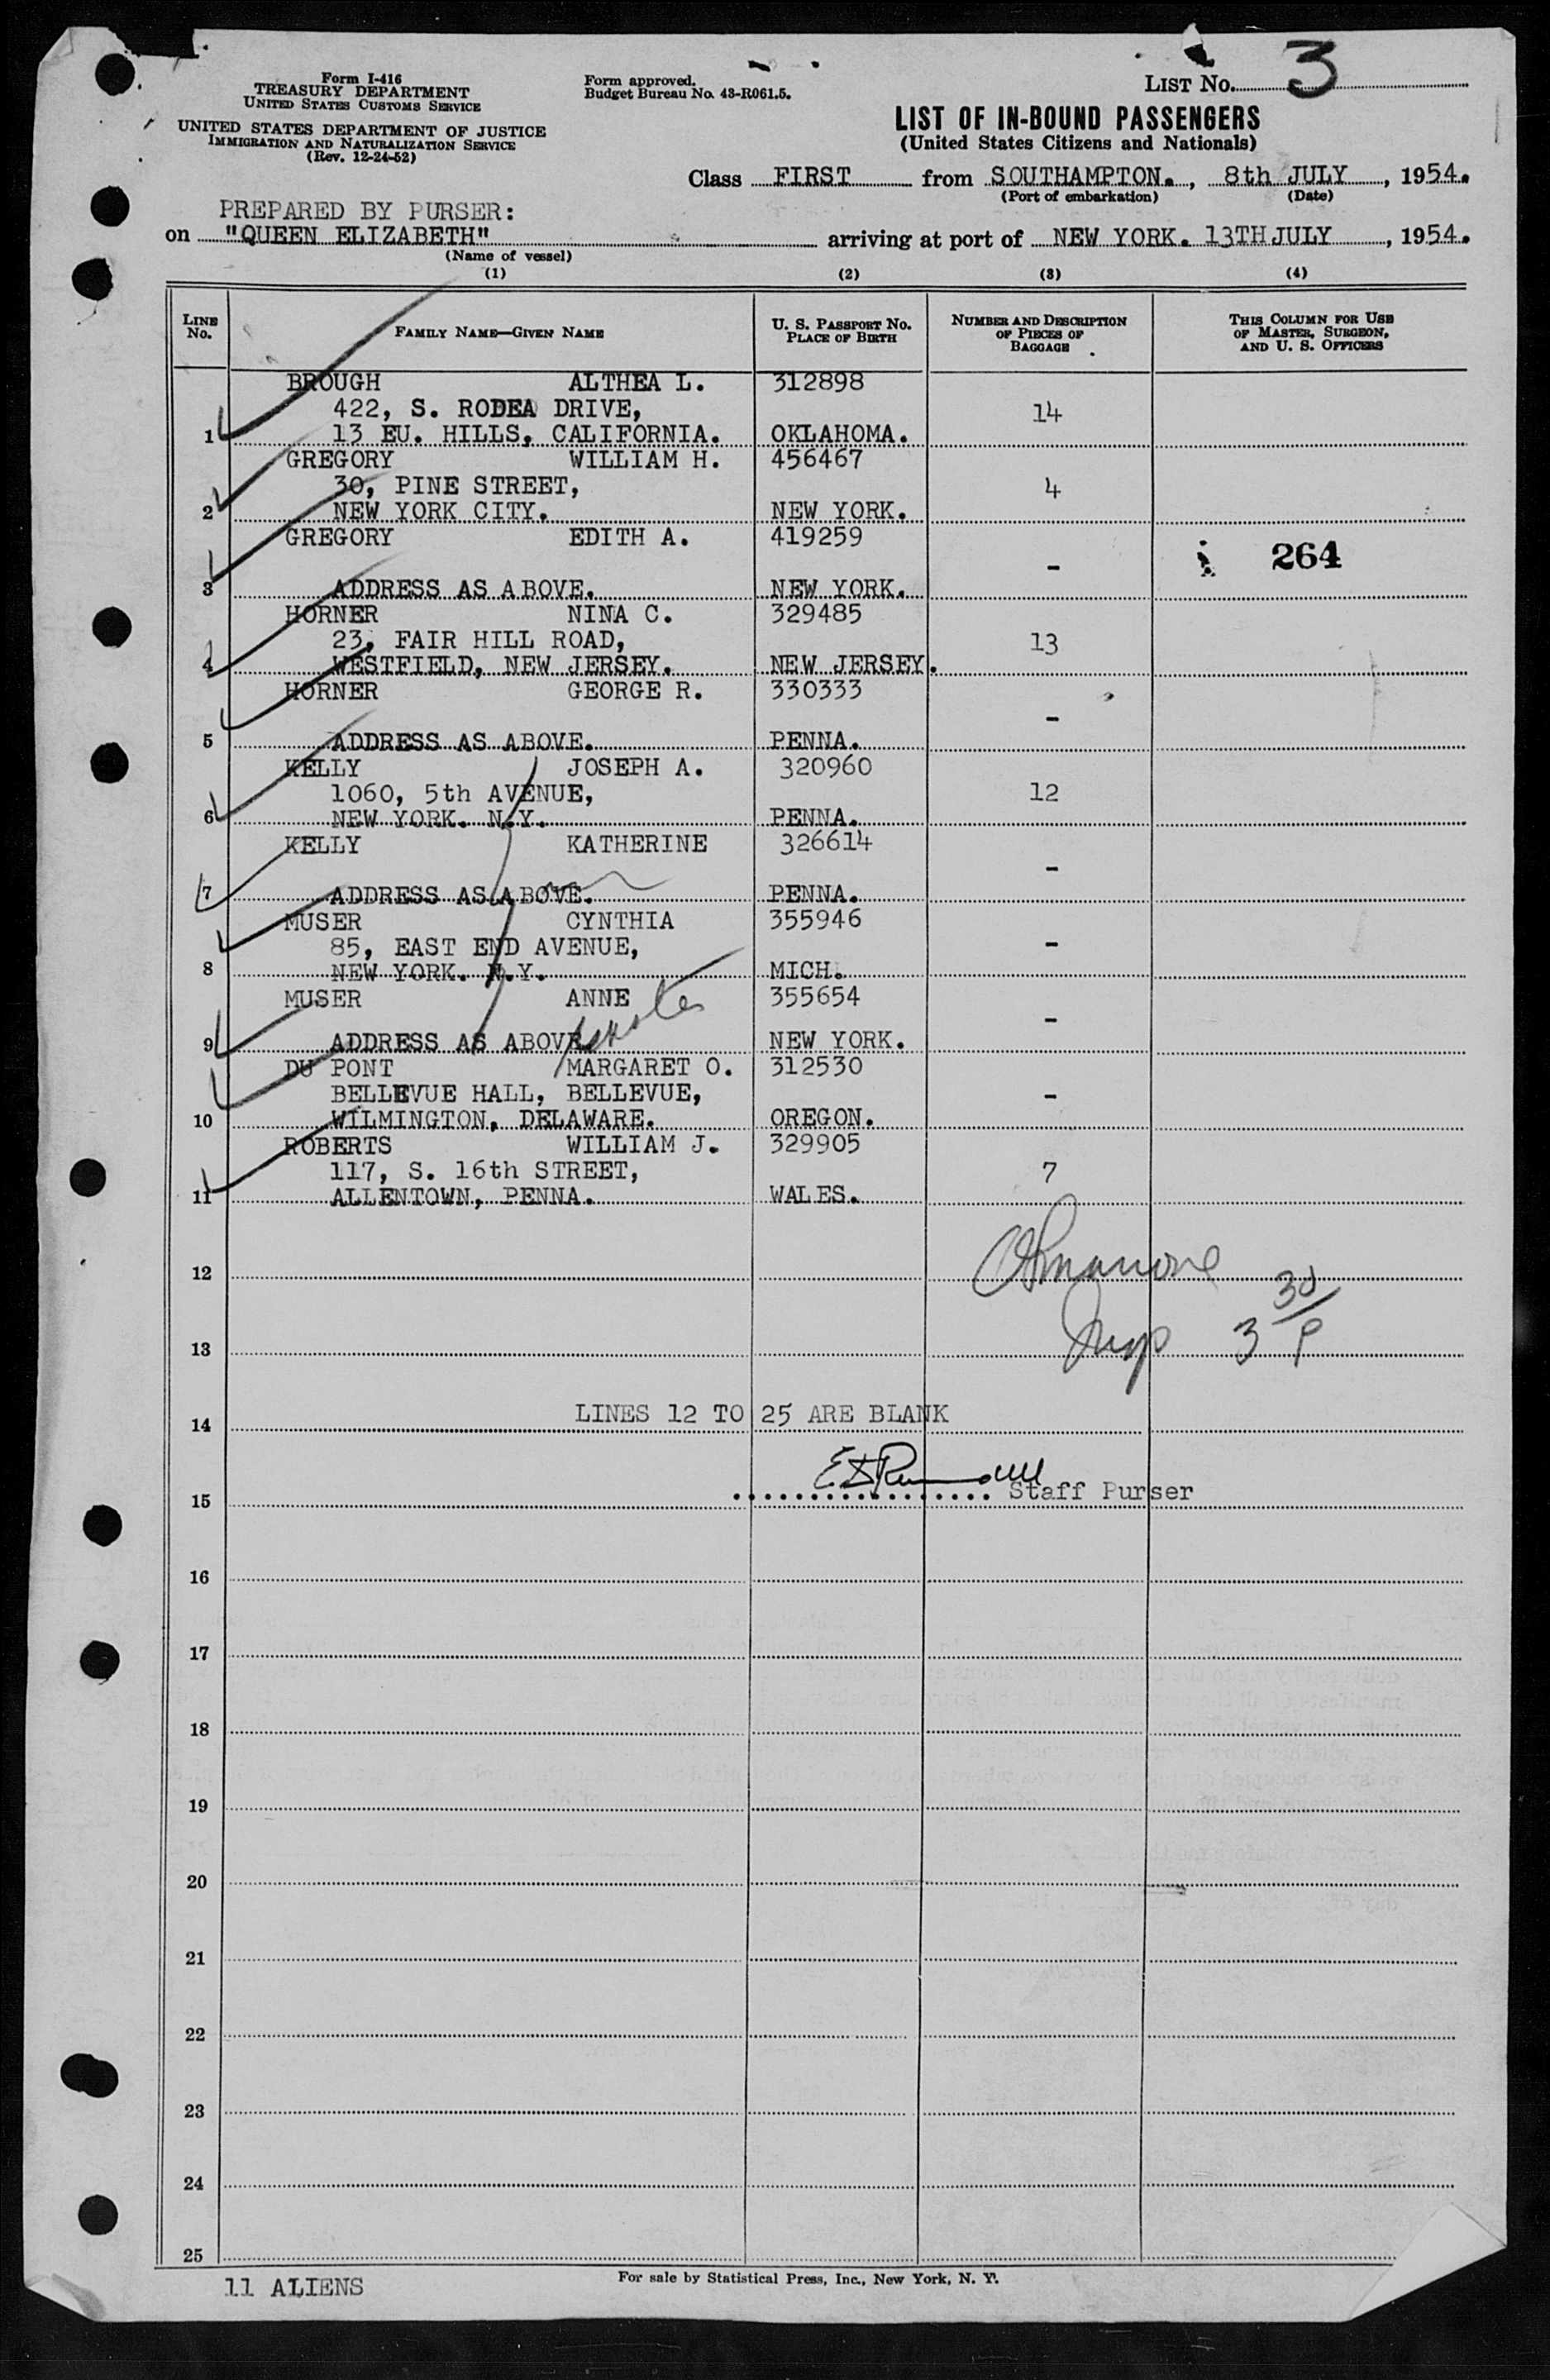 Form I-416
TREASURY DEPARTMENT
UNITED STATES CUSTOMS SERVICE
UNITED STATES DEPARTMENT OF JUSTICE
IMMIGRATION AND NATURALIZATION SERVICE
(Rev. 12-24-52)
Form approved.
Budget Bureau No. 43-R061.5.
LIST No. 3
LIST OF IN-BOUND PASSENGERS
(United States Citizens and Nationals)
Class FIRST from SOUTHAMPTON. , 8th JULY , 1954.
(Port of embarkation) (Date)
PREPARED BY PURSER:
on "QUEEN ELIZABETH" arriving at port of NEW YORK. 13TH JULY , 1954.
(Name of vessel)
(1) (2) (3) (4)
LINE No. FAMILY NAME—GIVEN NAME U. S. PASSPORT No. PLACE OF BIRTH NUMBER AND DESCRIPTION OF PIECES OF BAGGAGE THIS COLUMN FOR USE OF MASTER, SURGEON, AND U. S. OFFICERS
BROUGH ALTHEA L. 312898
422, S. RODEA DRIVE, 14
1 13 EU. HILLS, CALIFORNIA. OKLAHOMA.
GREGORY WILLIAM H. 456467
30, PINE STREET, 4
2 NEW YORK CITY. NEW YORK.
GREGORY EDITH A. 419259
- 264
3 ADDRESS AS ABOVE. NEW YORK.
HORNER NINA C. 329485
23, FAIR HILL ROAD, 13
4 WESTFIELD, NEW JERSEY. NEW JERSEY.
HORNER GEORGE R. 330333
-
5 ADDRESS AS ABOVE. PENNA.
KELLY JOSEPH A. 320960
1060, 5th AVENUE, 12
6 NEW YORK. N.Y. PENNA.
KELLY KATHERINE 326614
-
7 ADDRESS AS ABOVE. PENNA.
MUSER CYNTHIA 355946
85, EAST END AVENUE, -
8 NEW YORK. N.Y. MICH.
MUSER ANNE 355654
-
9 ADDRESS AS ABOVE NEW YORK.
DU PONT MARGARET O. 312530
BELLEVUE HALL, BELLEVUE, -
10 WILMINGTON, DELAWARE. OREGON.
ROBERTS WILLIAM J. 329905
117, S. 16th STREET, 7
11 ALLENTOWN, PENNA. WALES.
12
30
13 Insp 3 P
LINES 12 TO 25 ARE BLANK
14
Staff Purser
15
16
17
18
19
20
21
22
23
24
25
11 ALIENS
For sale by Statistical Press, Inc., New York, N. Y.